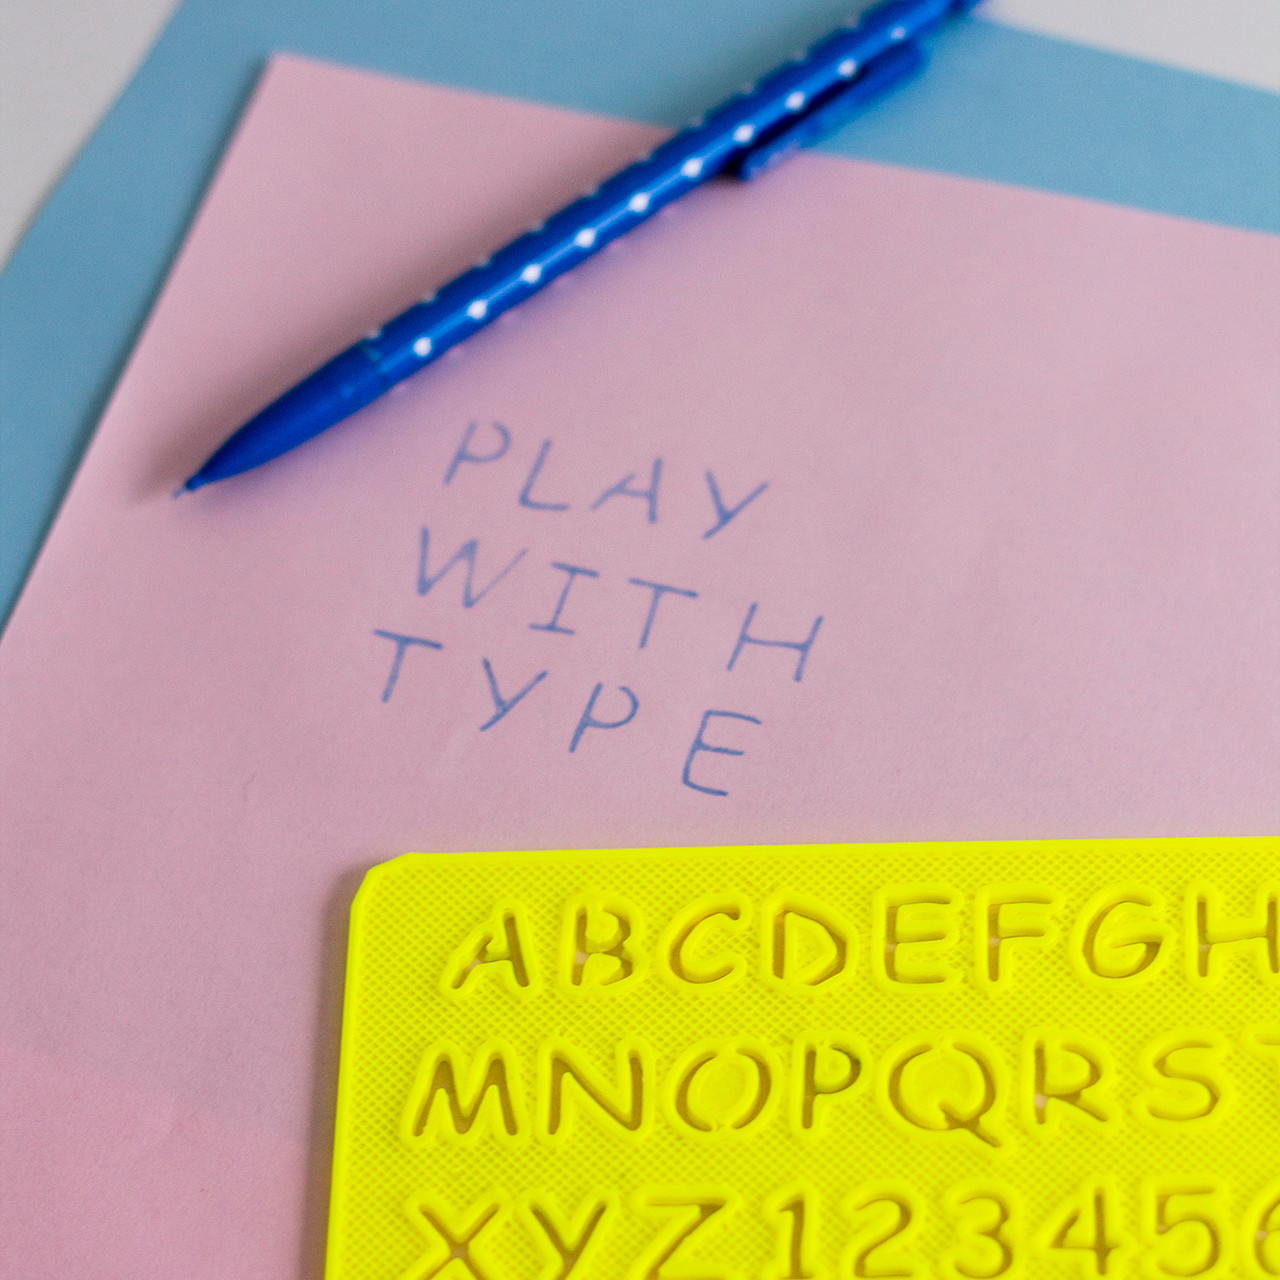 PLAY
WITH
TYPE
ABCDEFGH
MNOPQRS
XYZ123456